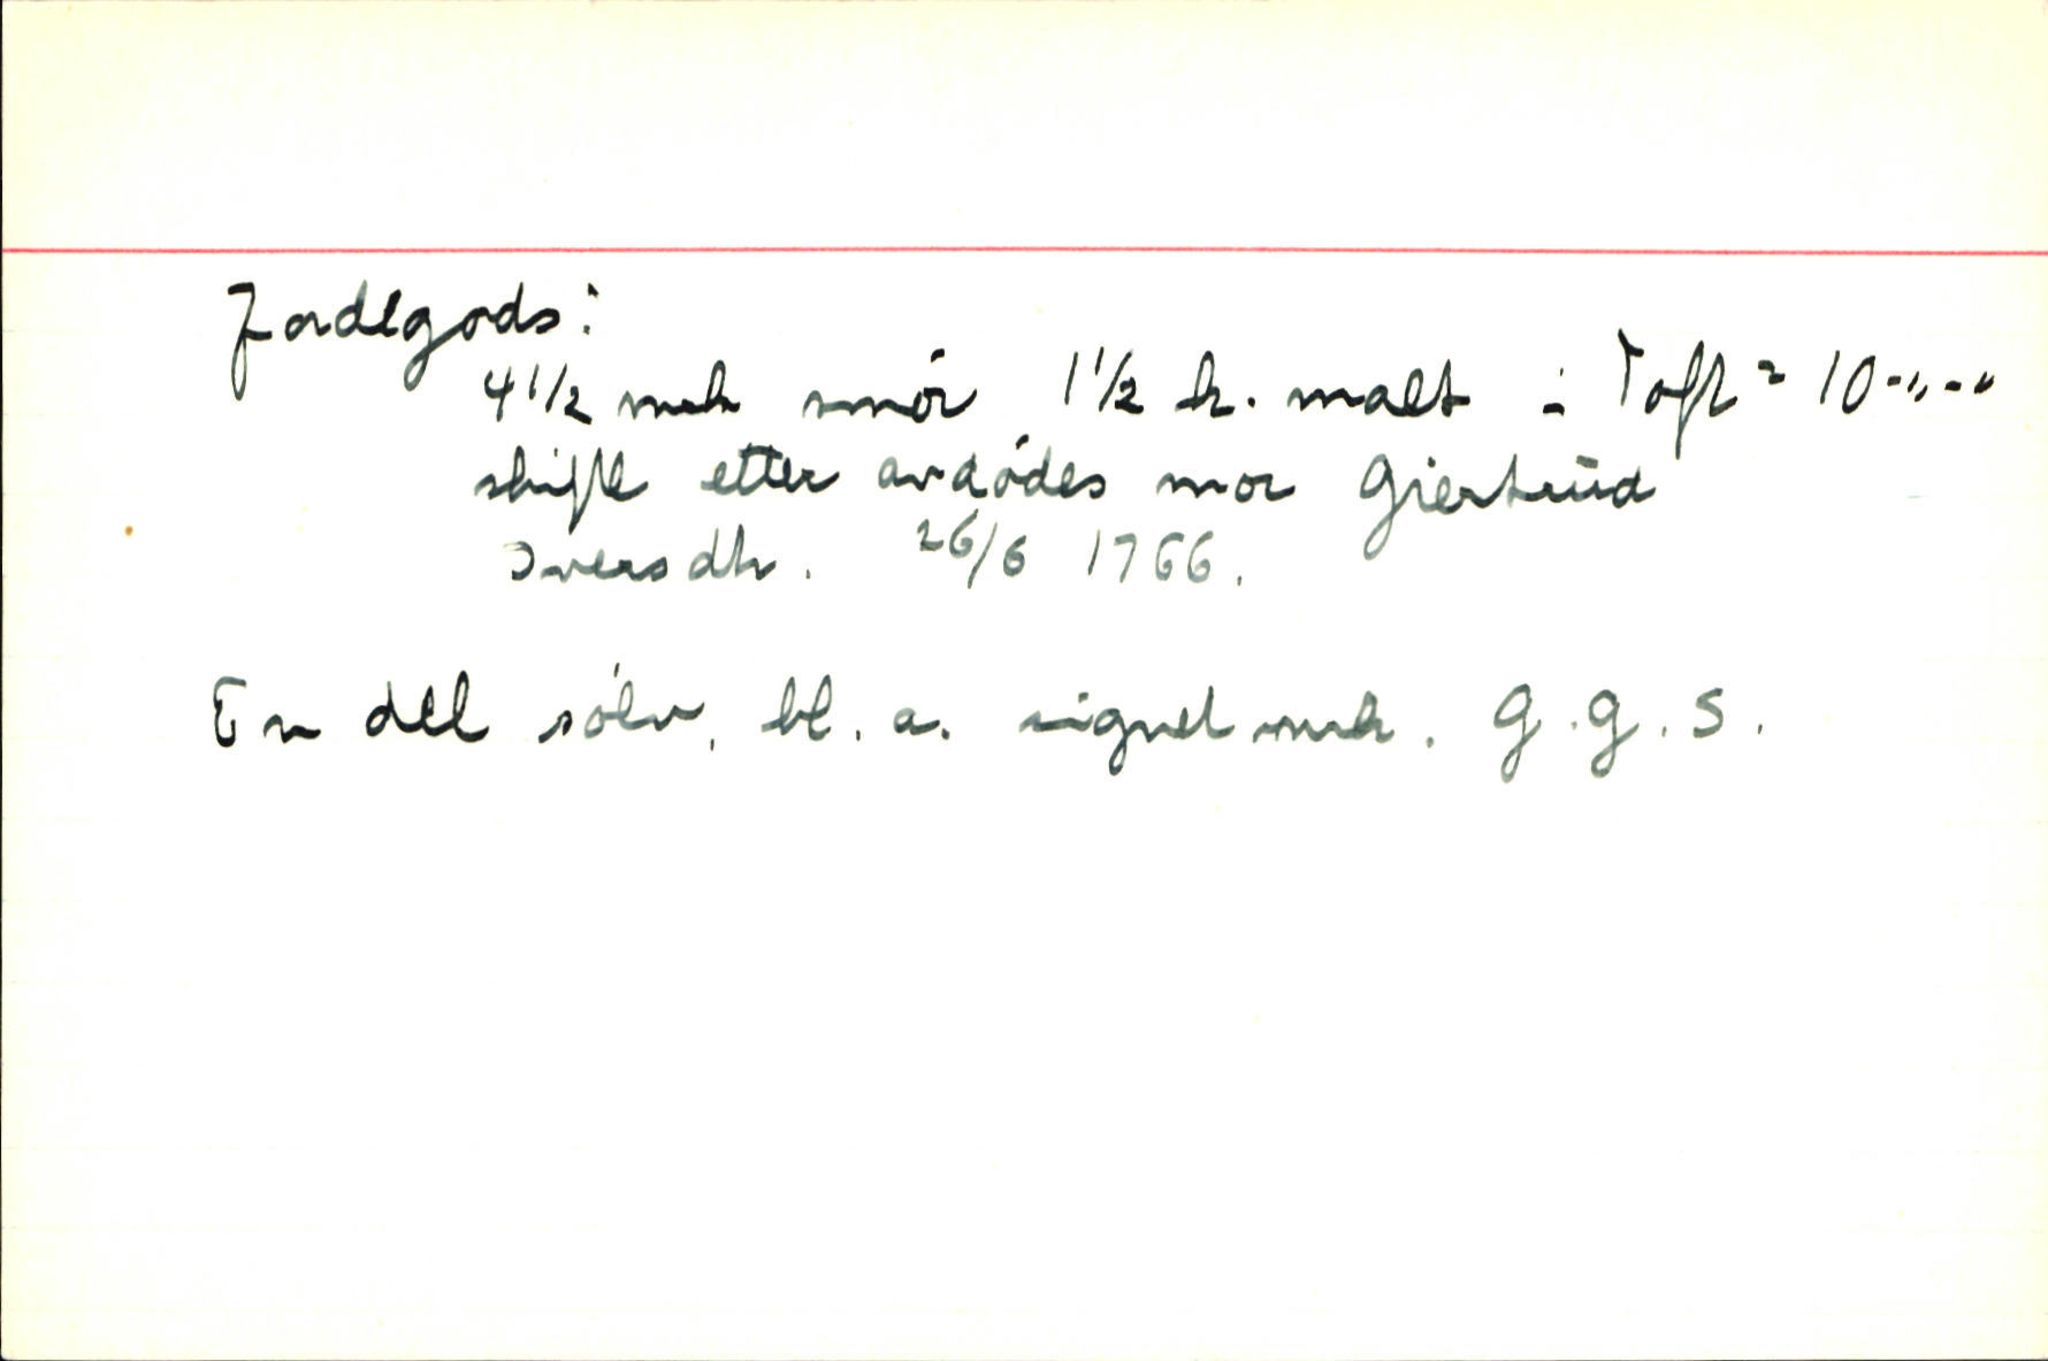 Jordegods:
4 1/2 mrk smör 1 1/2 h. malt i Toft = 10-"-"
skifte etter avdödes mor Giertrud
Iversdtr. 26/6 1766.
En del sölv, bl. a. signet mrk. G.G.S.